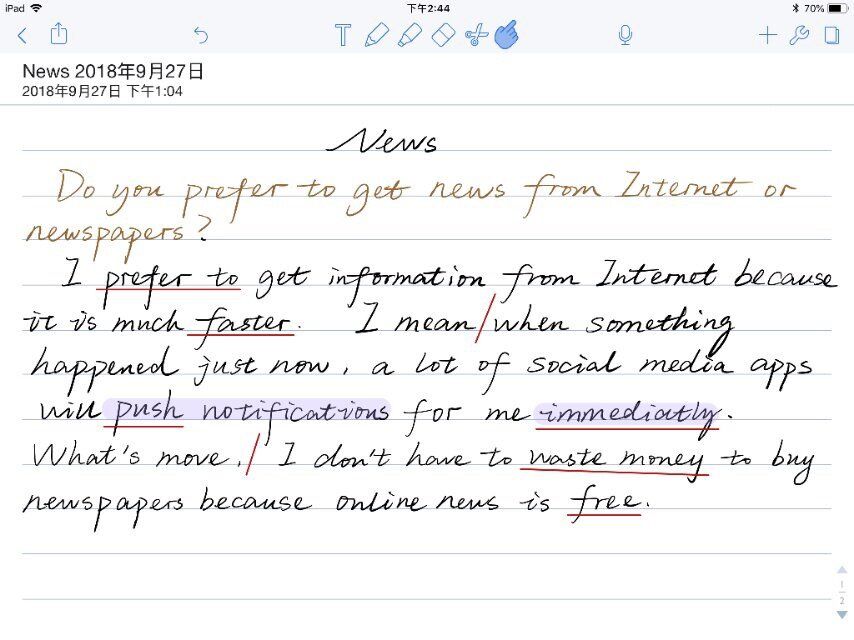 iPad 下午2:44 70%
News 2018年9月27日
2018年9月27日 下午1:04
News
Do you prefer to get news from Internet or
newspapers?
I prefer to get information from Internet because
it is much faster. I mean/when something
happened just now, a lot of social media apps
will push notifications for me immediatly.
What's move, / I don't have to waste money to buy
newspapers because online news is free.
1
2